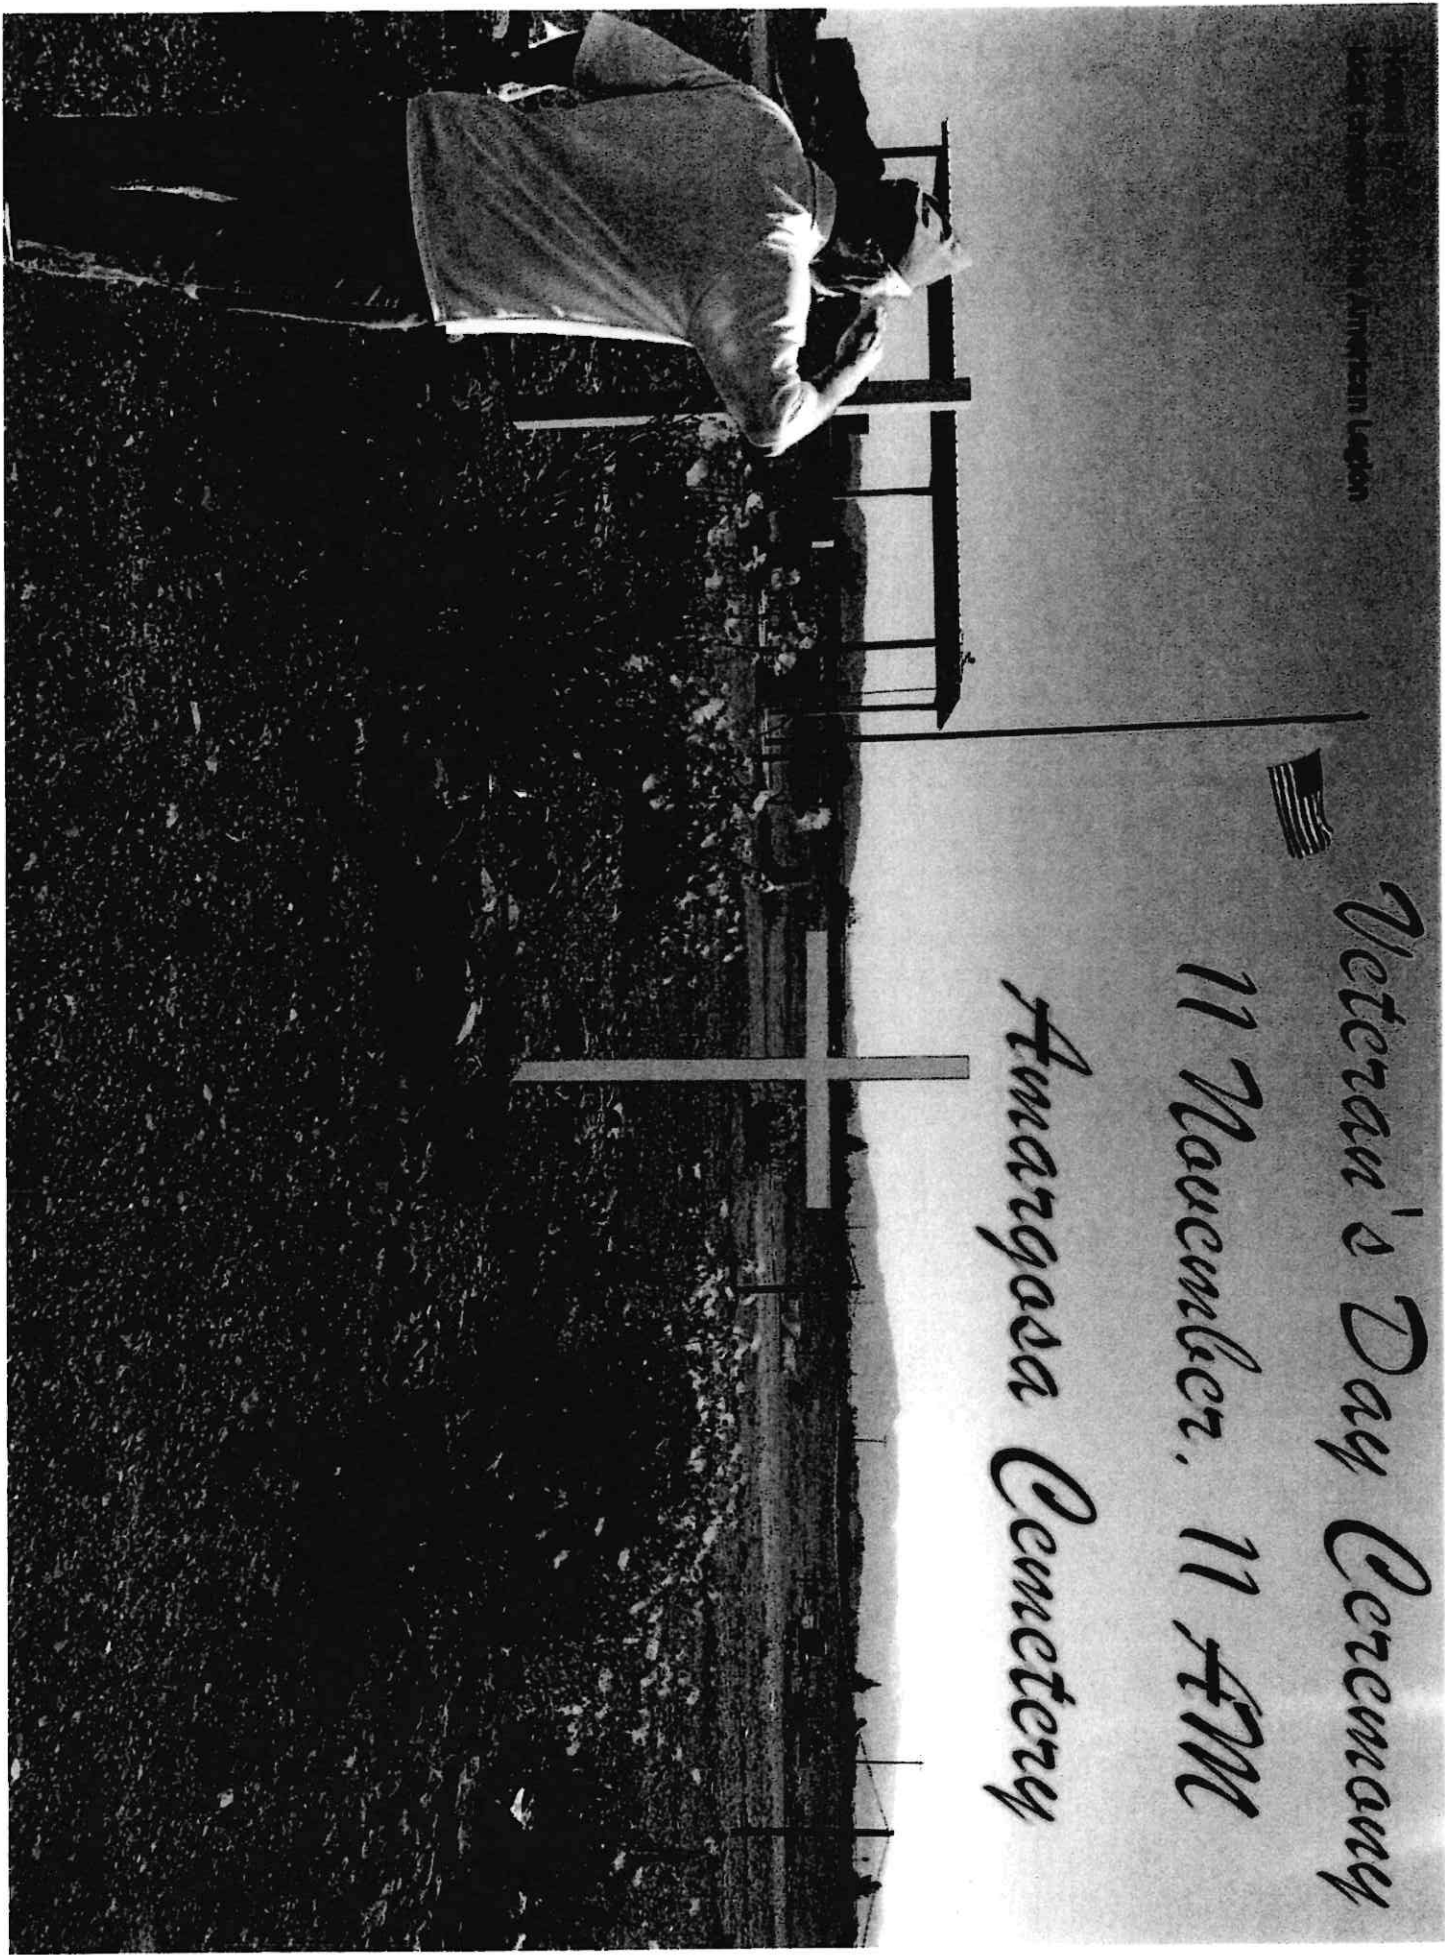 Veteran's Day Ceremony
11 November, 11 AM
Amargosa Cemetery
American Legion